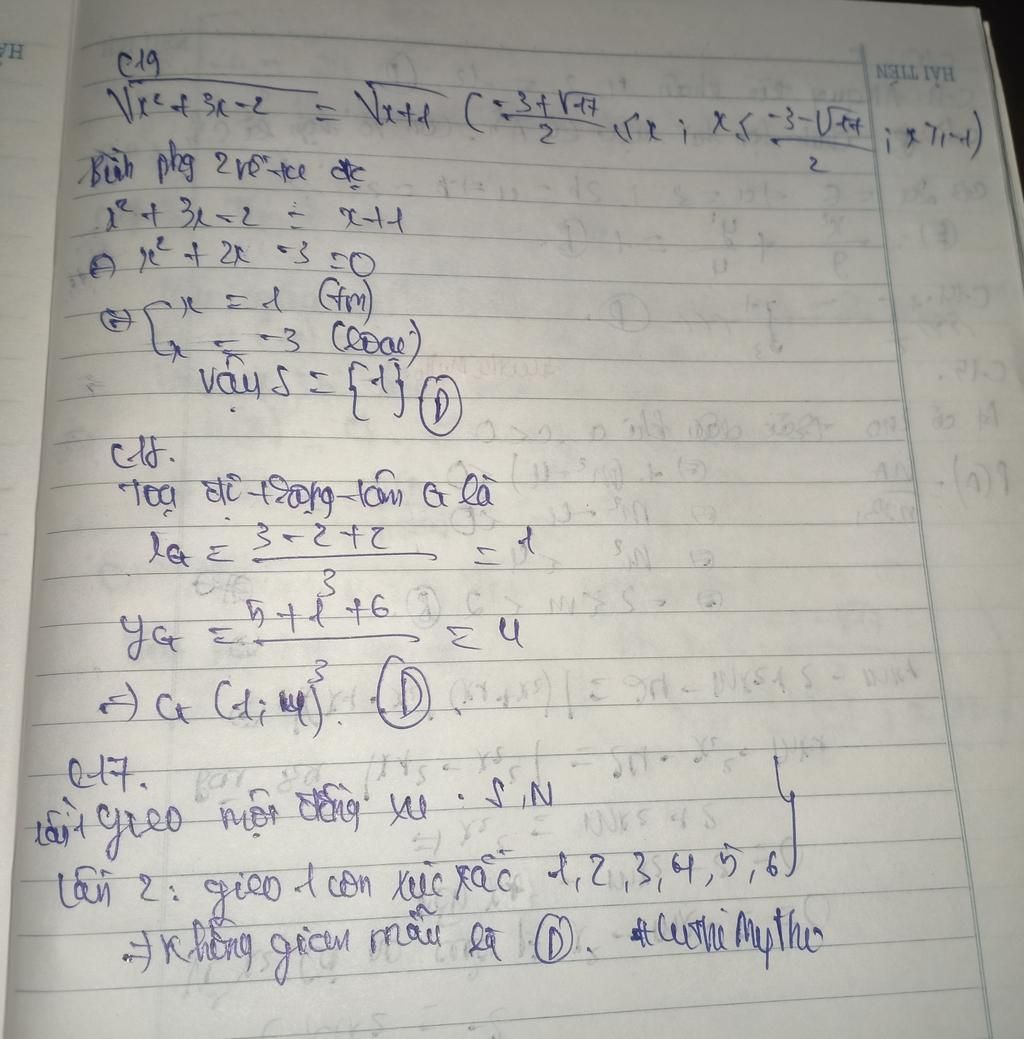 HẢI TIẾN
C19
√x² + 3x - 2 = √x+1 ( -3+√17 / 2 ≤ x ; x ≤ -3-√17 / 2 ; x ≥ -1)
Bình phg 2 vế ta đc
x² + 3x - 2 = x+1
⇔ x² + 2x - 3 = 0
⇔ [ x = 1 (tm)
x = -3 (loại)
Vậy S = {1} D
C18.
Toạ độ trọng tâm G là
xG = 3 - 2 + 2 / 3 = 1
yG = 5 + 1 + 6 / 3 = 4
⇒ G (1; 4). D
C17.
Lần 1 gieo một đồng xu. S, N
Lần 2: gieo 1 con xúc xắc 1, 2, 3, 4, 5, 6
⇒ Không gian mẫu là D.